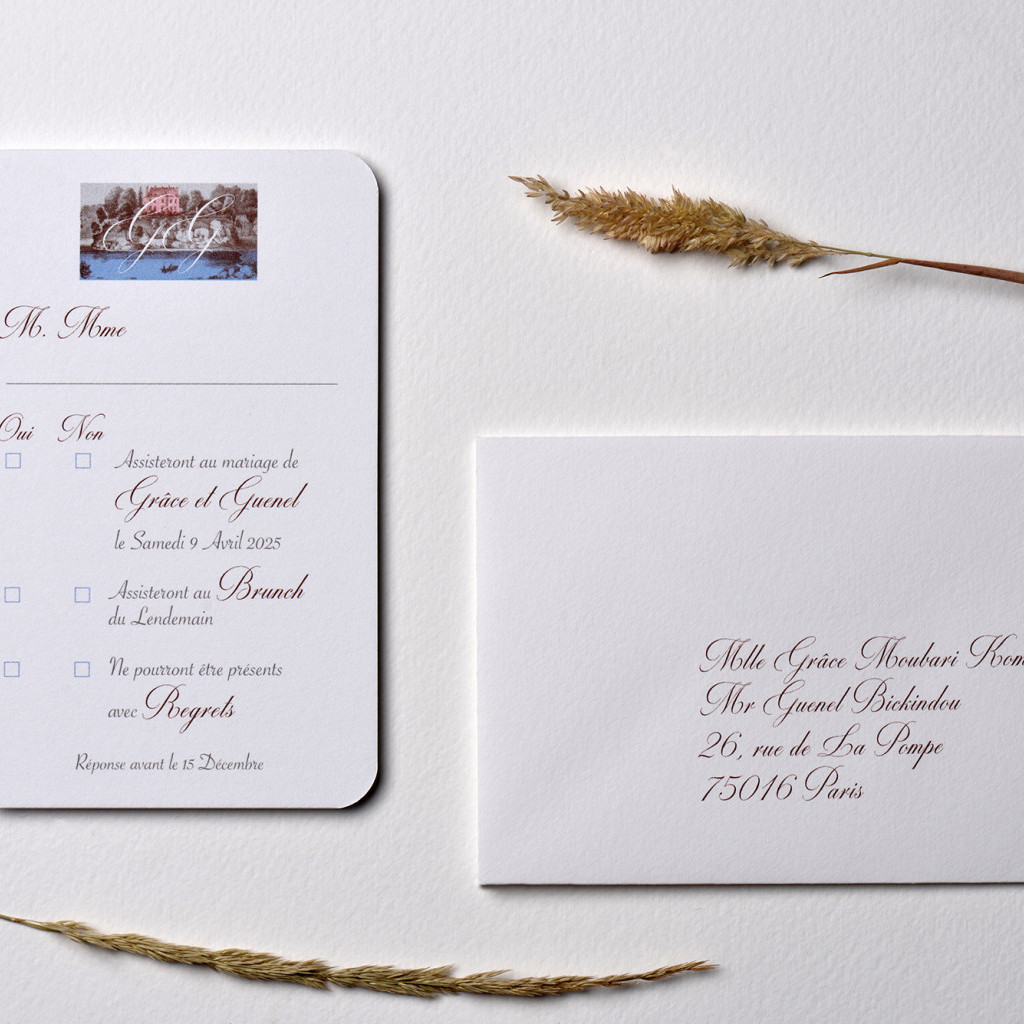 GG
M. Mme
Oui Non
Assisteront au mariage de
Grâce et Guenel
le Samedi 9 Avril 2025
Assisteront au Brunch
du Lendemain
Ne pourront être présents
avec Regrets
Réponse avant le 15 Décembre
Mlle Grâce Moubari
Mr Guenel Bickindou
26, rue de La Pompe
75016 Paris